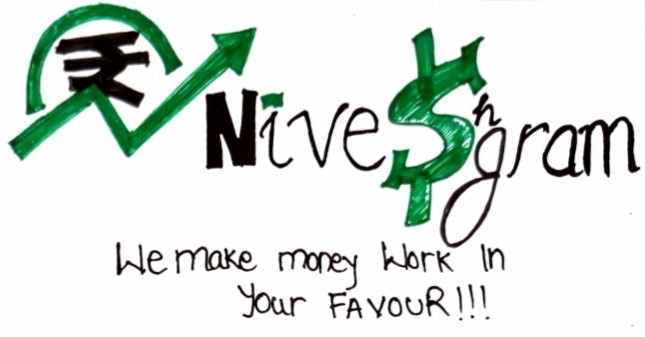 ₹
Nive$hgram
We make money Work In
Your FAVOUR!!!